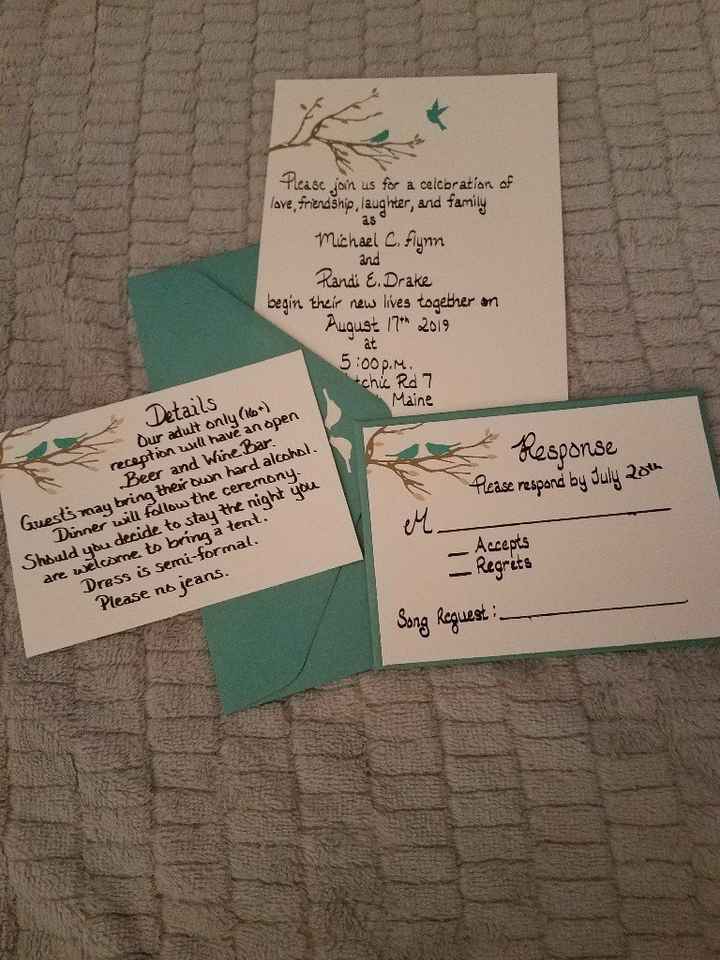 Please join us for a celebration of
love, friendship, laughter, and family
as
Michael C. Flynn
and
Randi E. Drake
begin their new lives together on
August 17th 2019
at
5:00 p.m.
tchic Rd 7
Maine
Details
Our adult only (16+)
reception will have an open
Beer and Wine Bar.
Guest's may bring their own hard alcohol.
Dinner will follow the ceremony.
Should you decide to stay the night you
are welcome to bring a tent.
Dress is semi-formal.
Please no jeans.
Response
Please respond by July 20th
M
Accepts
Regrets
Song Request: